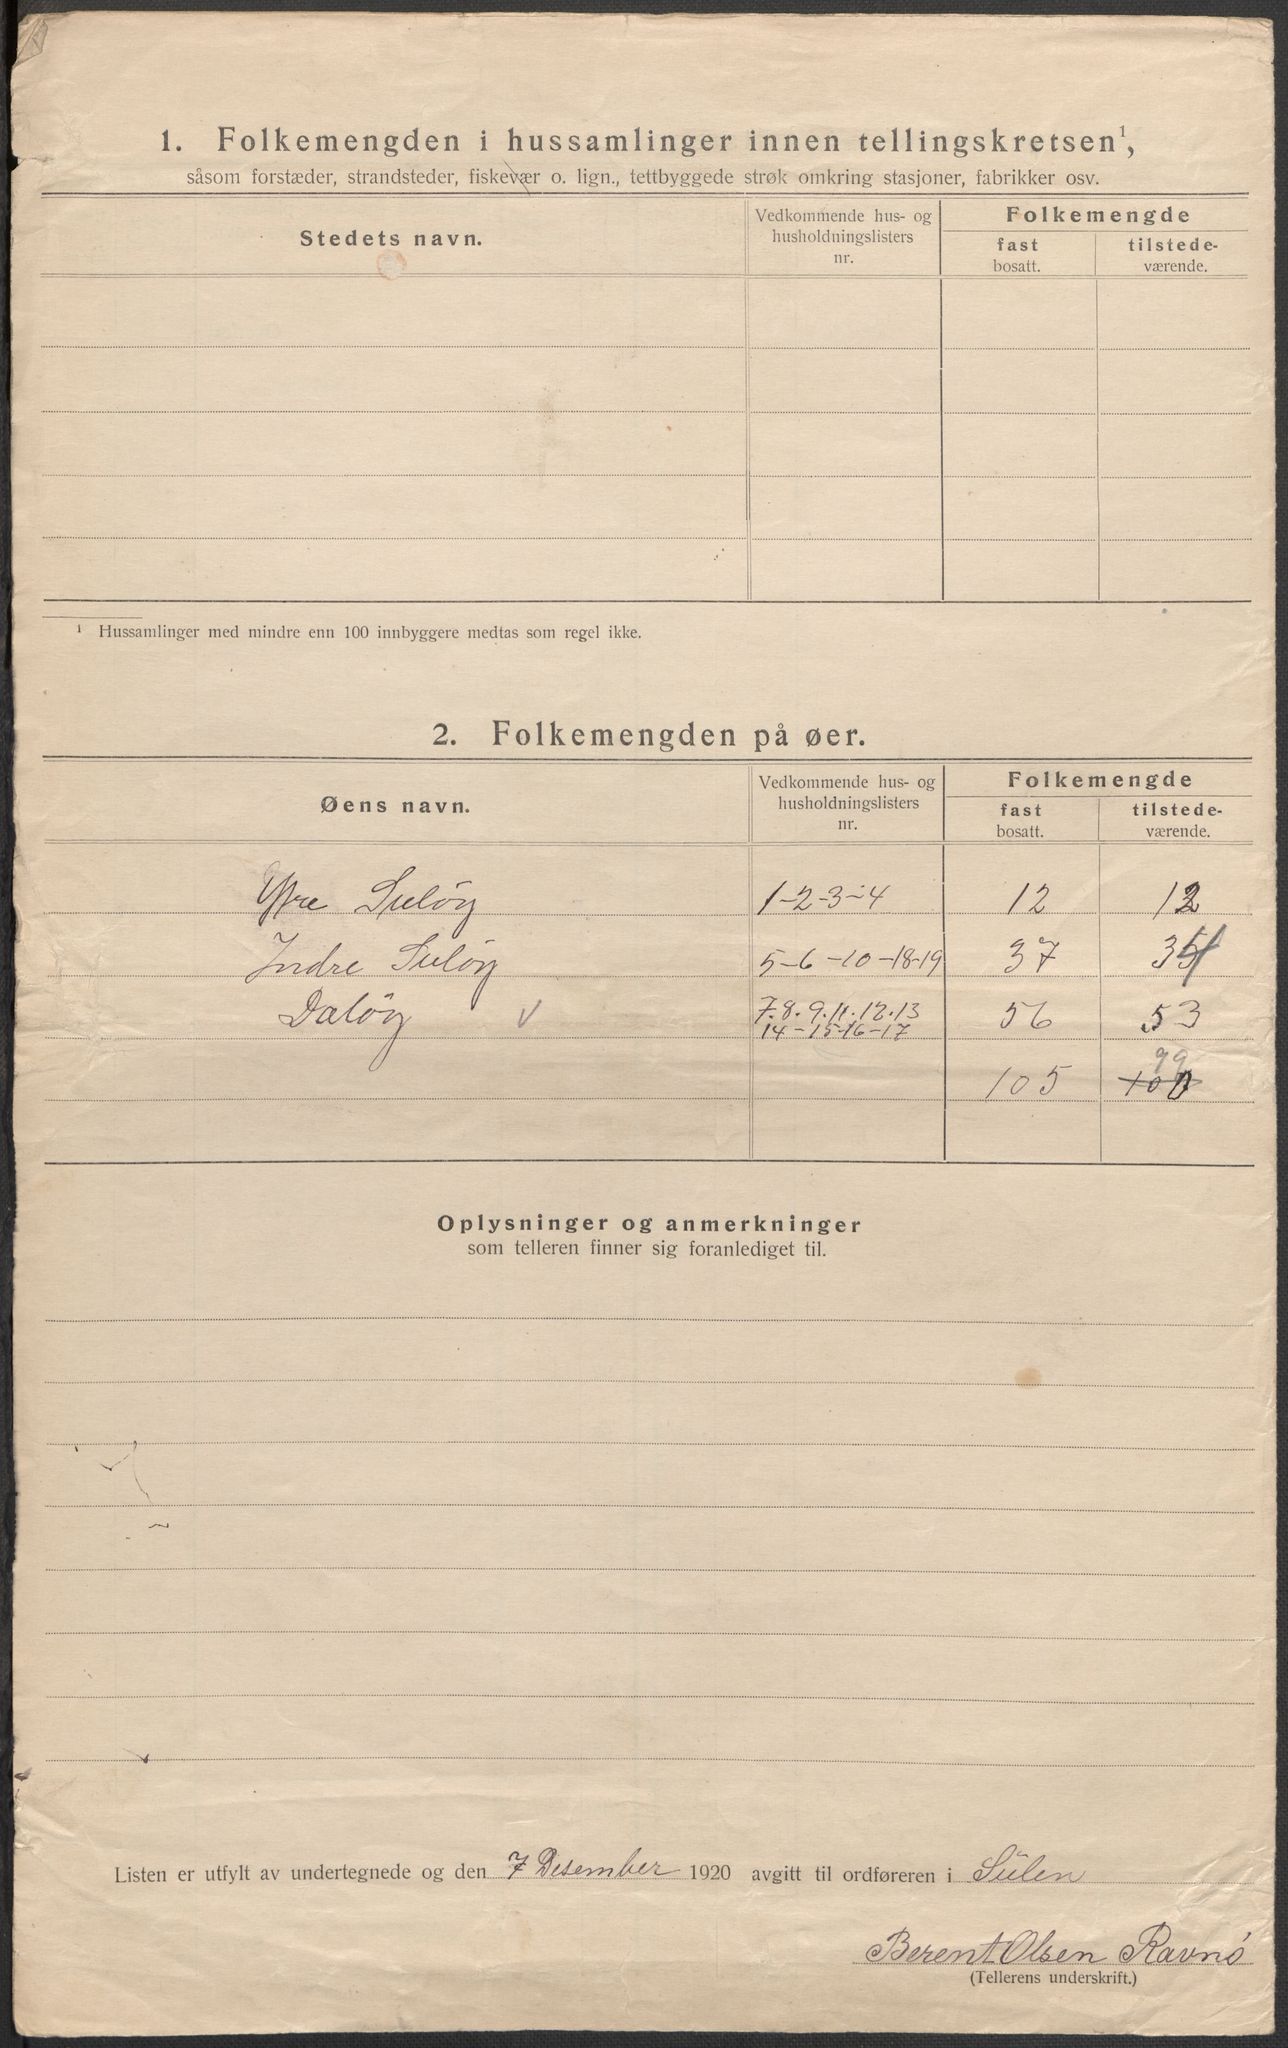 1. Folkemengden i hussamlinger innen tellingskretsen¹,
såsom forstæder, strandsteder, fiskevær o. lign., tettbyggede strøk omkring stasjoner, fabrikker osv.
Stedets navn. Vedkommende hus- og husholdningslisters nr. Folkemengde
fast bosatt. tilstede-værende.
¹ Hussamlinger med mindre enn 100 innbyggere medtas som regel ikke.
2. Folkemengden på øer.
Øens navn. Vedkommende hus- og husholdningslisters nr. Folkemengde
fast bosatt. tilstede-værende.
Ytre Sulöy 1-2-3-4 12 12
Indre Sulöy 5-6-10-18-19 37
Dalöy V 7.8.9.11.12.13 56 53
14-15-16-17
99
105 100
Oplysninger og anmerkninger
som telleren finner sig foranlediget til.
Listen er utfylt av undertegnede og den 7 Desember 1920 avgitt til ordføreren i Sülen
Berent Olsen Ravnö
(Tellerens underskrift.)